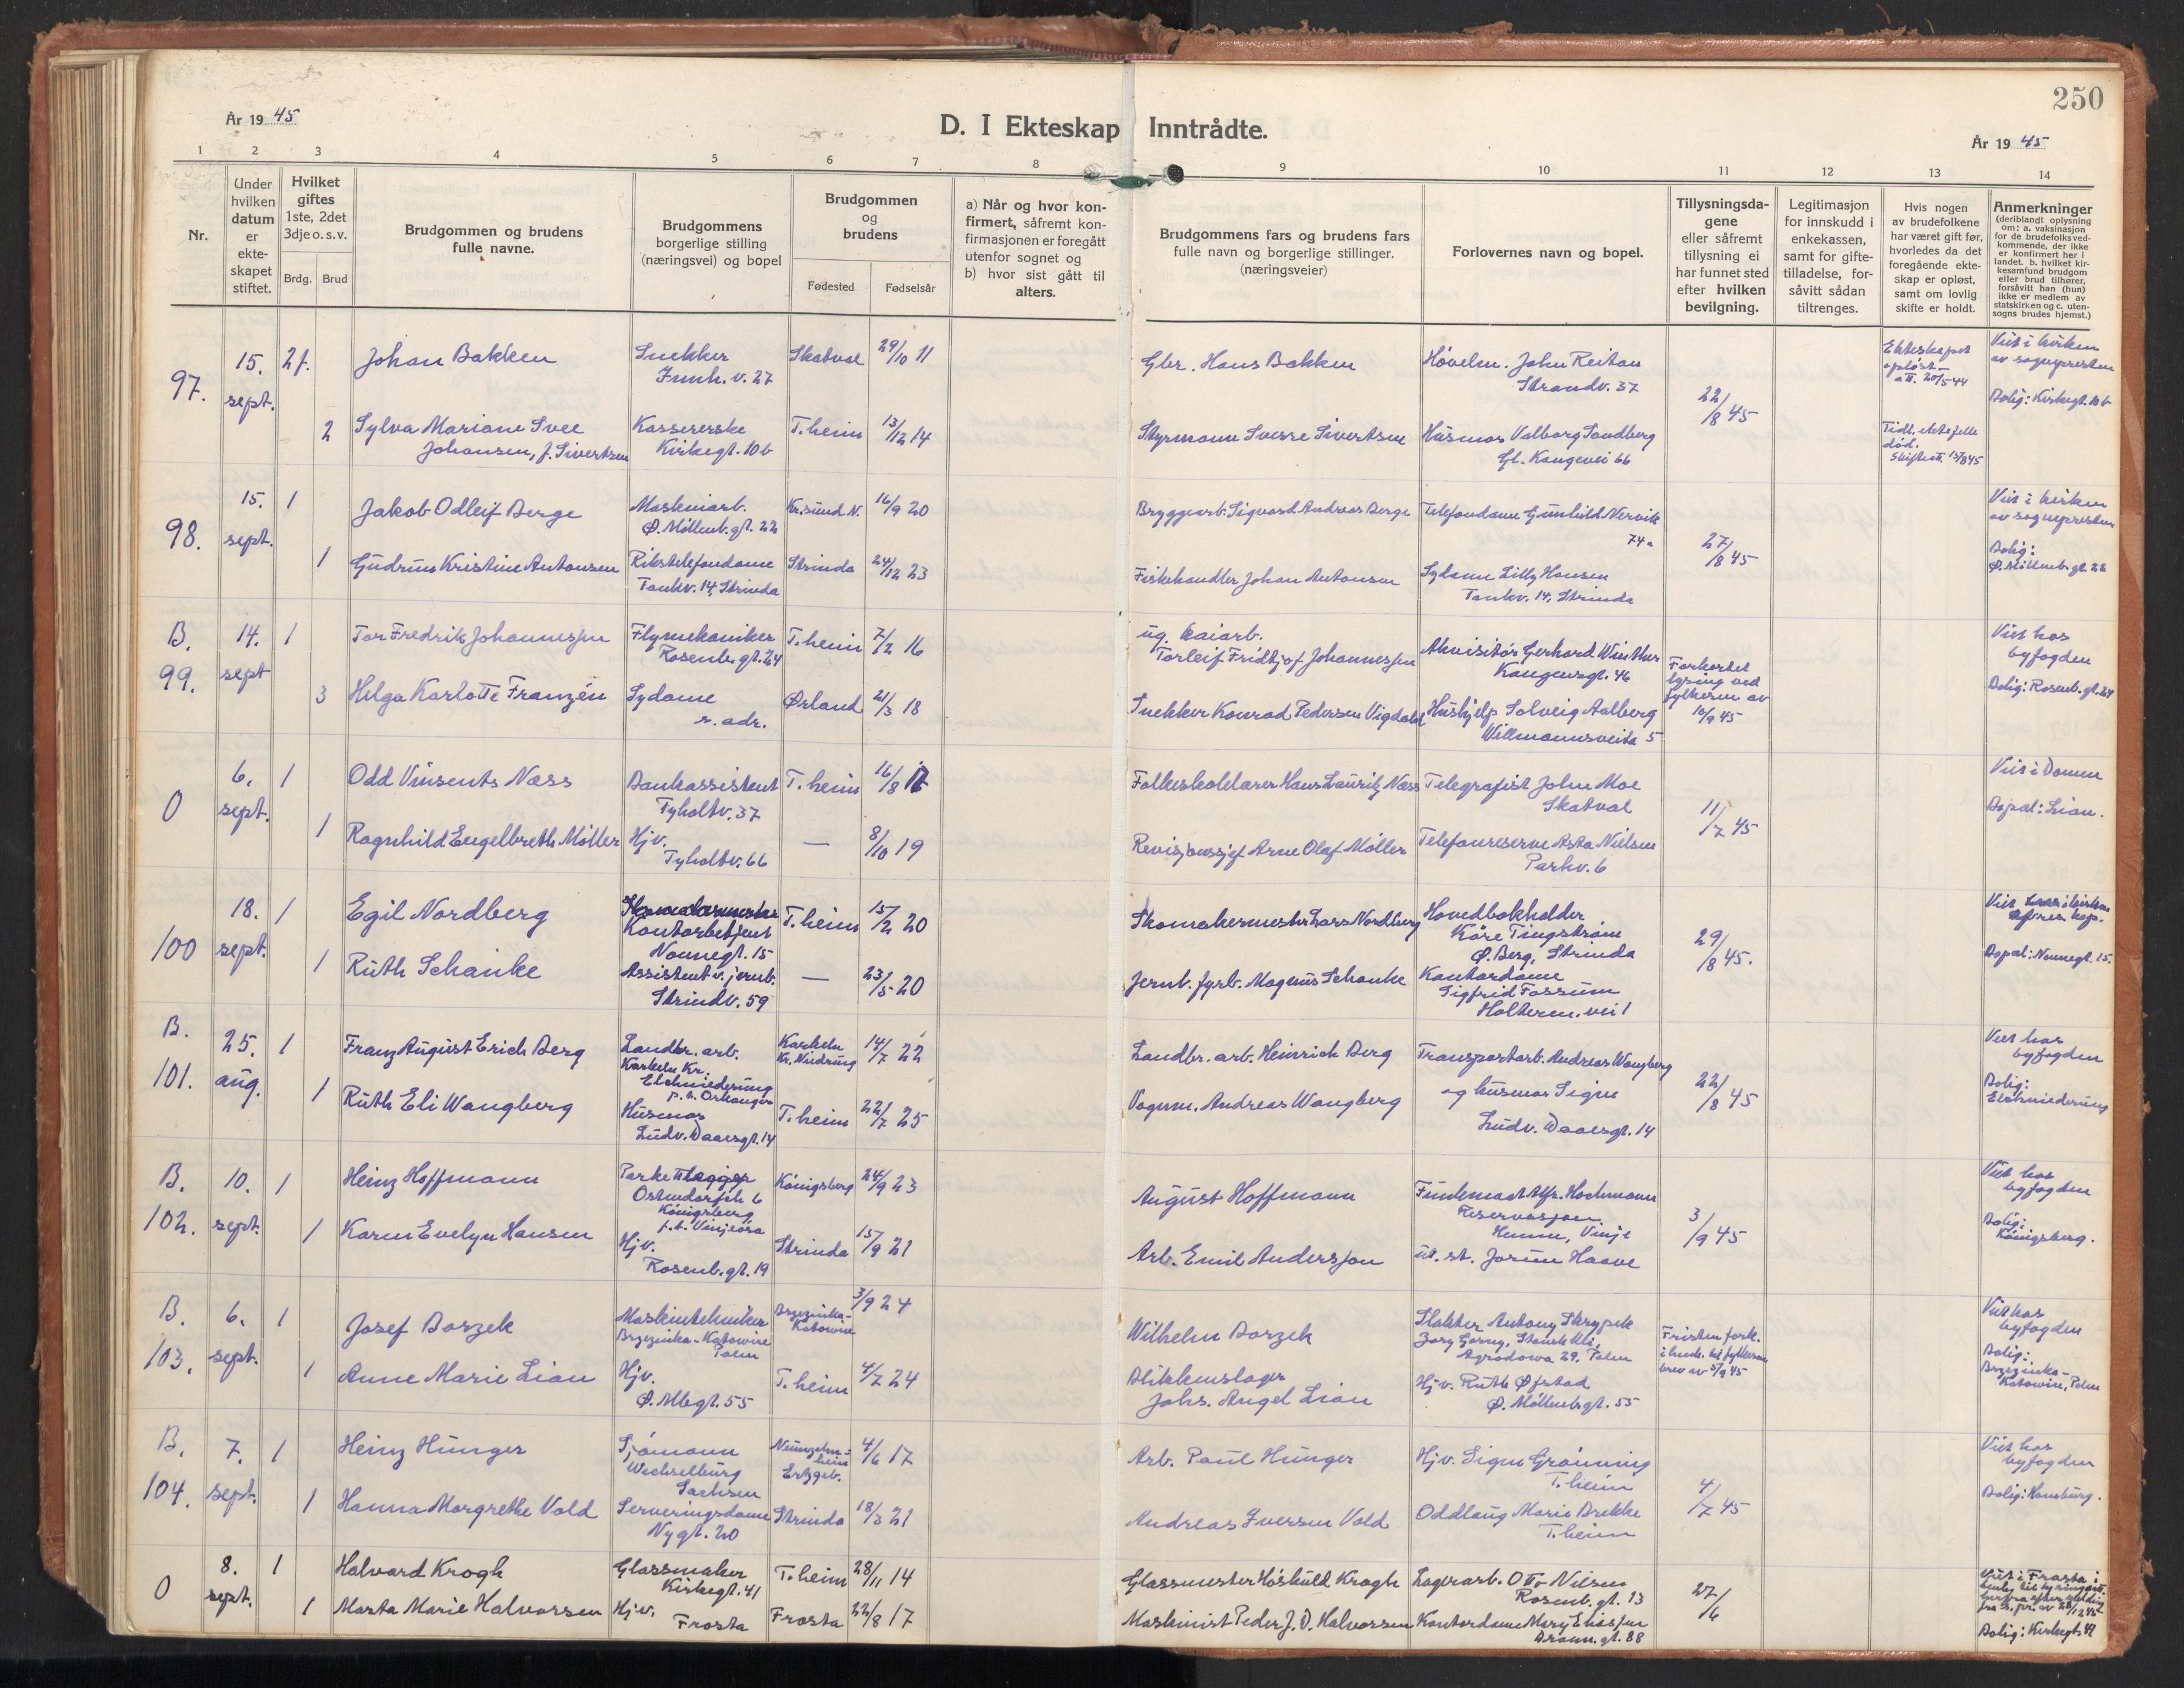 250
År 19 45
D. I Ekteskap Inntrådte.
År 19 45
1 2 3 4 5 6 7 8 9 10 11 12 13 14
Nr.
Under hvilken datum er ekteskapet stiftet.
Hvilket giftes 1ste, 2det 3dje o. s. v.
Brdg. Brud
Brudgommen og brudens fulle navne.
Brudgommens borgerlige stilling (næringsvei) og bopel
Brudgommen og brudens
Fødested Fødselsår
a) Når og hvor konfirmert, såfremt konfirmasjonen er foregått utenfor sognet og b) hvor sist gått til alters.
Brudgommens fars og brudens fars fulle navn og borgerlige stillinger. (næringsveier)
Forlovernes navn og bopel.
Tillysningsdagene eller såfremt tillysning ei har funnet sted efter hvilken bevilgning.
Legitimasjon for innskudd i enkekassen, samt for giftetilladelse, forsåvitt sådan tiltrenges.
Hvis nogen av brudefolkene har været gift før, hvorledes da det foregående ekteskap er opløst, samt om lovlig skifte er holdt.
Anmerkninger (deriblandt oplysning om: a. vaksinasjon for de brudefolks vedkommende, der ikke er konfirmert her i landet. b. hvilket kirkesamfund brudgom eller brud tilhører, forsåvitt han (hun) ikke er medlem av statskirken og c. utensogns brudes hjemst.)
97. 15. sept. 2f. Johan Bakken Snekker Innh. v. 27 Skatval 29/10 11 Gbr. Hans Bakken Høvelm. John Reitan Strandv. 37 22/8 45 Ekteskapet opløst att. 20/5 44 Viet i kirken av sognepresten
2 Sylva Mariane Svee Johansen, f. Sivertsen Kassererske Kirkegt. 10b T.heim 13/12 14 Styrmann Sverre Sivertsen Husmor Valborg Sandberg Gl. Kongevei 66 Tidl. ektefelle død. Skifteatt. 13/8 45 Bolig: Kirkegt. 10b
98. 15. sept. 1 Jakob Odleif Berge Maskinarb. Ø. Møllenb. gt. 22 Kr.sund N. 16/9 20 Bryggearb. Sigvard Andreas Berge Telefondame Gunhild Nervik 74a 27/8 45 Viet i kirken av sognepresten
1 Gudrun Kristine Antonsen Rikstelefondame Tankv. 14, Strinda Strinda 24/12 23 Fiskehandler Johan Antonsen Sydame Lilly Hansen Tankv. 14, Strinda Bolig: Ø. Møllenb. gt. 22
B. 99. 14. sept 1 Tor Fredrik Johannessen Flymekaniker Rosenb. gt. 24 T.heim 7/2 16 ug. kaiarb. Torleif Fridtjof Johannessen Akvisitør Gerhard Winther Kongensgt. 46 Forkortet lysing ved fylkesm av 10/9 45 Viet hos byfogden
3 Helga Karlotte Franzén Sydame s. adr. Ørland 21/3 18 Snekker Konrad Pedersen Vigdal Hushjelp Solveig Aalberg Willmannsveita 5 Bolig: Rosenb. gt. 24
0 6. sept. 1 Odd Vinsents Næss Bankassistent Tyholtv. 37 T.heim 16/8 Folkeskolelærer Hans Lauritz Næss Telegrafist John Moe Skatval 11/7 45 Viet i Domen
1 Ragnhild Engelbreth Möller Hjv. Tyholtv. 66 — 8/10 19 Revisjonssjef Arne Olaf Möller Telefonreserve Asta Nielsen Parkv. 6 Bopæl: Lian.
100 18. sept. 1 Egil Nordberg Kontorbetjent Nonnegt. 15 T.heim 15/2 20 Skomakermester Lars Nordberg Hovedbokholder Kåre Tingstrøm Ø. Berg, Strinda 29/8 45. Viet i kirken av res. kap.
1 Ruth Schanke Assistent v. jernb. Strindv. 59 — 23/5 20 Jernb. fyrb. Magnus Schanke Kontordame Sigfrid Fossum Holterm. vei 1 Bopæl: Nonnegt. 15.
B. 101. 25. aug. 1 Franz August Erich Berg Landbr. arb. Karkeln Kr. Elchniederung p. t. Orkanger Karkeln Kr. Niedrung 14/7 22 Landbr. arb. Heinrich Berg Transportarb. Andreas Wangberg 22/8 45 Viet hos byfogden
1 Ruth Eli Wangberg Husmor Ludv. Daaesgt. 14 T.heim 22/7 25 Vognm. Andreas Wangberg og husmor Signe Ludv. Daaesgt. 14 Bolig: Elchniederung
B. 102. 10. sept. 1 Heinz Hoffmann Parkettlegger Ostendorfch 6 Königsberg p.t. Vinjeøra Königsberg 24/9 23 August Hoffmann Alfr. Hochmann Reservasjon Hemne, Vinje 3/9 45 Viet hos byfogden
1 Karen Evelyn Hansen Hjv. Rosenb. gt. 19 Strinda 15/9 21 Arb. Emil Anderssen ut. st. Jorun Haave Bolig: Königsberg.
B. 103. 6. sept. 1 Josef Borzek Maskintekniker Brzezinka-Katowice Polen Brzezinka-Katowice 3/9 24 Wilhelm Borzek Slakter Antony Skrypek Agrodowa 29, Polen Fristen fork. i henh. til fylkesm brev av 5/9 45 Viet hos byfogden
1 Anne Marie Lian Hjv. Ø. Mbgt. 55 T.heim 4/7 24 Blikkenslager Johs. Angel Lian Hjv. Ruth Øfstad Ø. Møllenb. gt. 55 Bolig: Brzezinka-Katowice, Polen
B. 104. 7. sept. 1 Heinz Hunger Sjømann Wechselburg Sachsen Erzgeb. 4/6 17 Arb. Paul Hunger Hjv. Signe Grønning T.heim 4/7 45 Viet hos byfogden
1 Hanna Margrethe Vold Serveringsdame Nygt. 20 Strinda 18/3 21 Andreas Iversen Vold Oddlaug Marie Brekke T.heim Bolig: Hamburg.
0 8. sept. 1 Halvard Krogh Glassmaker Kirkegt. 41 T.heim 28/11 14 Glassmester Høskuld Krogh Lagerarb. Otto Nilsen Rosenb. gt. 13 27/6 Viet i Frosta i henh. til lysningsatt. herfra efter melding fra s. pr. av 28/12 45
1 Marta Marie Halvorsen Hjv. Frosta Frosta 22/8 17 Maskinist Peder J. D. Halvorsen Kontordame Mary Eliassen Bolig: Kirkegt.